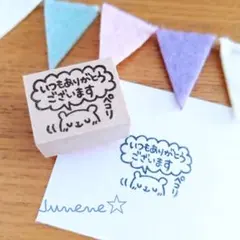 いつもありがとう
ございます
ペコリ
いつもありがとう
ございます
ペコリ
Junene☆